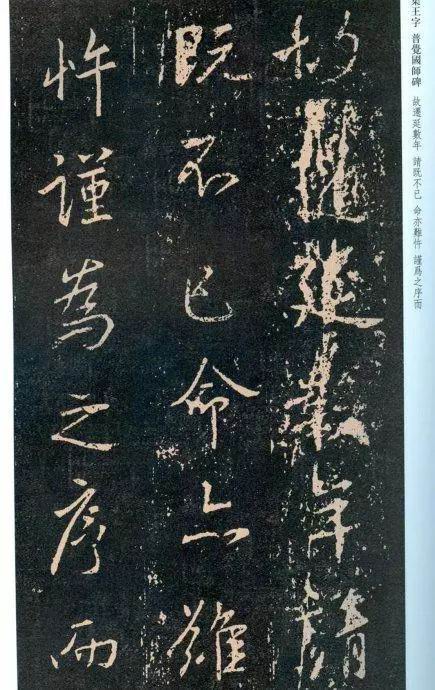 集王字 普覺國師碑 故遷延數年 請既不已 命亦難忤 謹爲之序而
故遷延數年請
既不已命亦難
忤謹為之序而